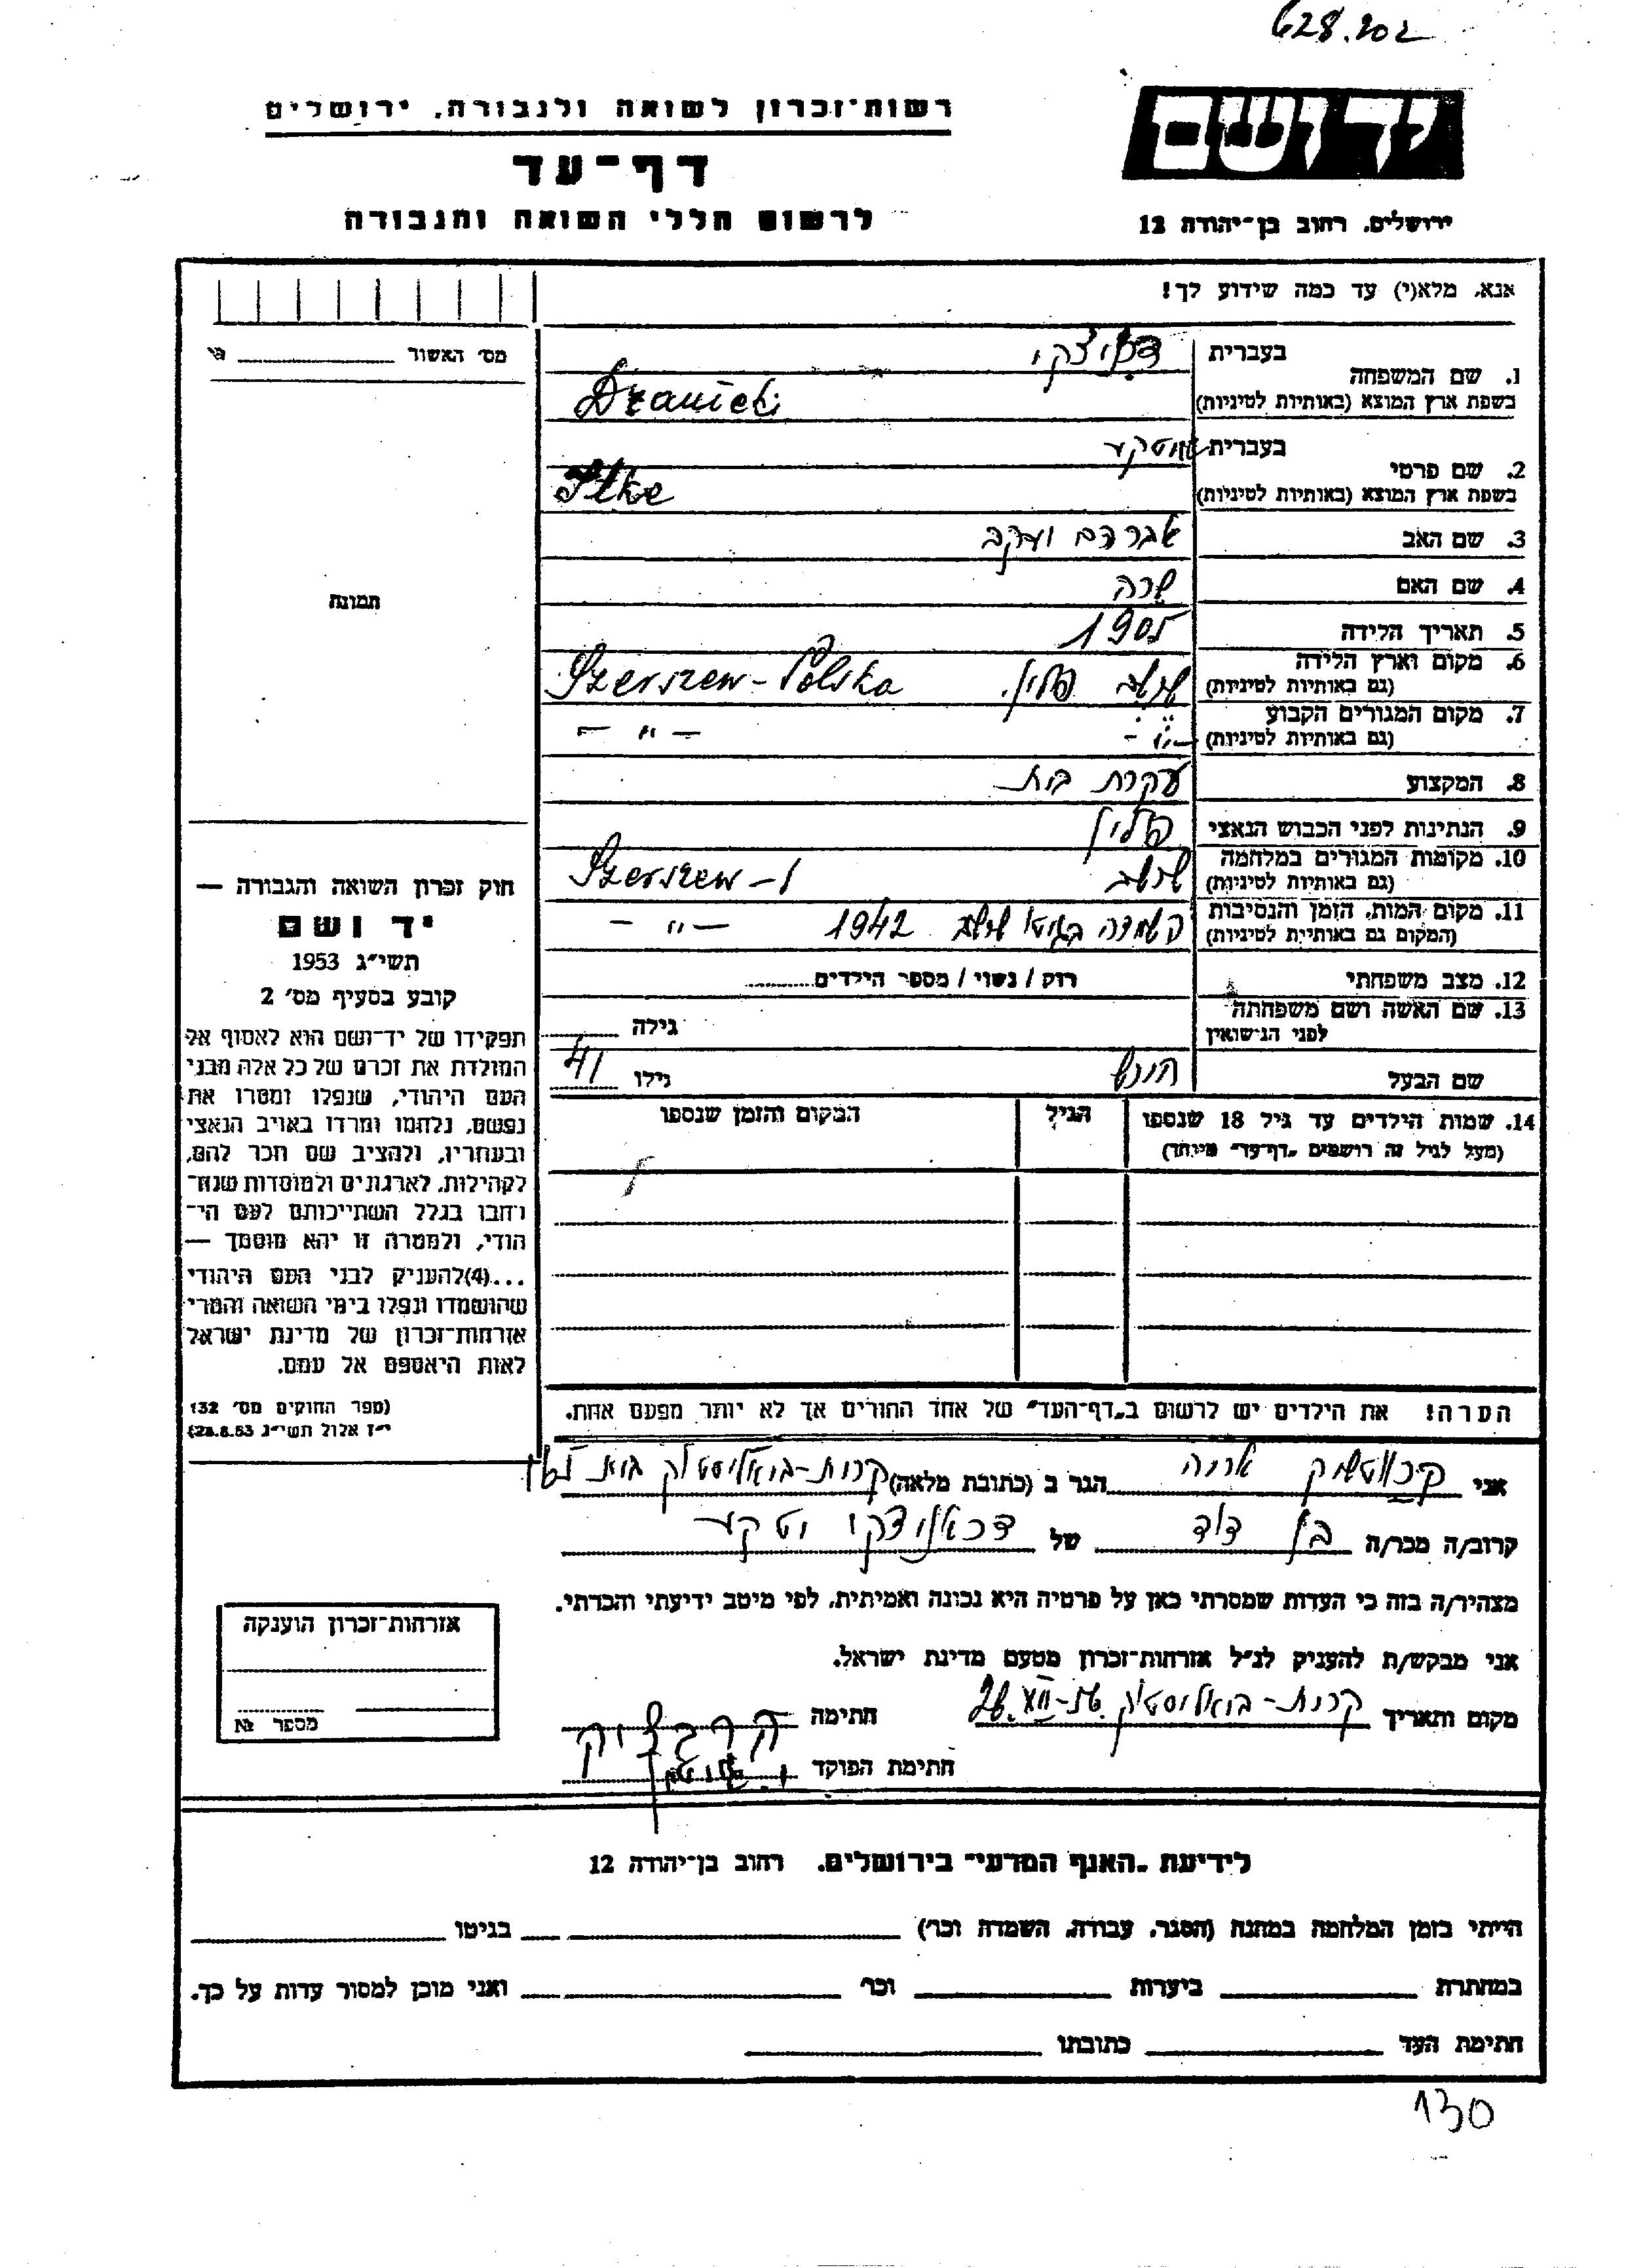 628.202
יד ושם
רשות־זכרון לשואה ולגבורה, ירושלים
דף־עד
לרשום חללי השואה והגבורה
ירושלים, רחוב בן־יהודה 12
אנא, מלא(י) עד כמה שידוע לך!
מס׳ האשור
1. שם המשפחה
בעברית
בשפת ארץ המוצא (באותיות לטיניות)
2. שם פרטי
בעברית
בשפת ארץ המוצא (באותיות לטיניות)
Itke
3. שם האב אברהם יעקב
4. שם האם שרה
5. תאריך הלידה 1905
6. מקום וארץ הלידה
(גם באותיות לטיניות) פולין. Szerszew - Polska
7. מקום המגורים הקבוע
(גם באותיות לטיניות) - " - - " -
8. המקצוע עקרת בית
9. הנתינות לפני הכבוש הנאצי פולין
10. מקומות המגורים במלחמה
(גם באותיות לטיניות) Szerszew
11. מקום המות, הזמן והנסיבות
(המקום גם באותיות לטיניות) השמדה בגיטו 1942 - " -
12. מצב משפחתי רוק / נשוי / מספר הילדים
13. שם האשה ושם משפחתה
לפני הנישואין
גילה
שם הבעל
גילו 41
14. שמות הילדים עד גיל 18 שנספו
(מעל לגיל זה רושמים "דף־עד" מיוחד)
הגיל
המקום והזמן שנספו
הערה! את הילדים יש לרשום ב„דף־העד" של אחד ההורים אך לא יותר מפעם אחת.
תמונה
חוק זכרון השואה והגבורה —
יד ושם
תשי״ג 1953
קובע בסעיף מס׳ 2
תפקידו של יד־ושם הוא לאסוף אל
המולדת את זכרם של כל אלה מבני
העם היהודי, שנפלו ומסרו את
נפשם, נלחמו ומרדו באויב הנאצי
ובעוזריו, ולהציב שם וזכר להם,
לקהילות, לארגונים ולמוסדות שנח־
רבו בגלל השתייכותם לעם הי־
הודי, ולמטרה זו יהא מוסמך —
...(4)להעניק לבני העם היהודי
שהושמדו ונפלו בימי השואה והמרי
אזרחות־זכרון של מדינת ישראל
לאות היאספם אל עמם.
(ספר החוקים מס׳ 132
י״ז אלול תשי״ג 28.8.53)
אני הגר ב (כתובת מלאה) קרית-ביאליסטוק
קרוב/ה מכר/ה בן דוד של
מצהיר/ה בזה כי העדות שמסרתי כאן על פרטיה היא נכונה ואמיתית, לפי מיטב ידיעתי והכרתי.
אני מבקש/ת להעניק לנ״ל אזרחות־זכרון מטעם מדינת ישראל.
מקום ותאריך קרית-ביאליסטוק 26.XII-56 חתימה
חתימת הפוקד
אזרחות־זכרון הוענקה
מספר №
לידיעת „האגף המדעי" בירושלים, רחוב בן־יהודה 12
הייתי בזמן המלחמה במחנה (הסגר, עבודה, השמדה וכו׳) בגיטו
במחתרת ביערות וכו׳ ואני מוכן למסור עדות על כך.
חתימת העד כתובתו
130